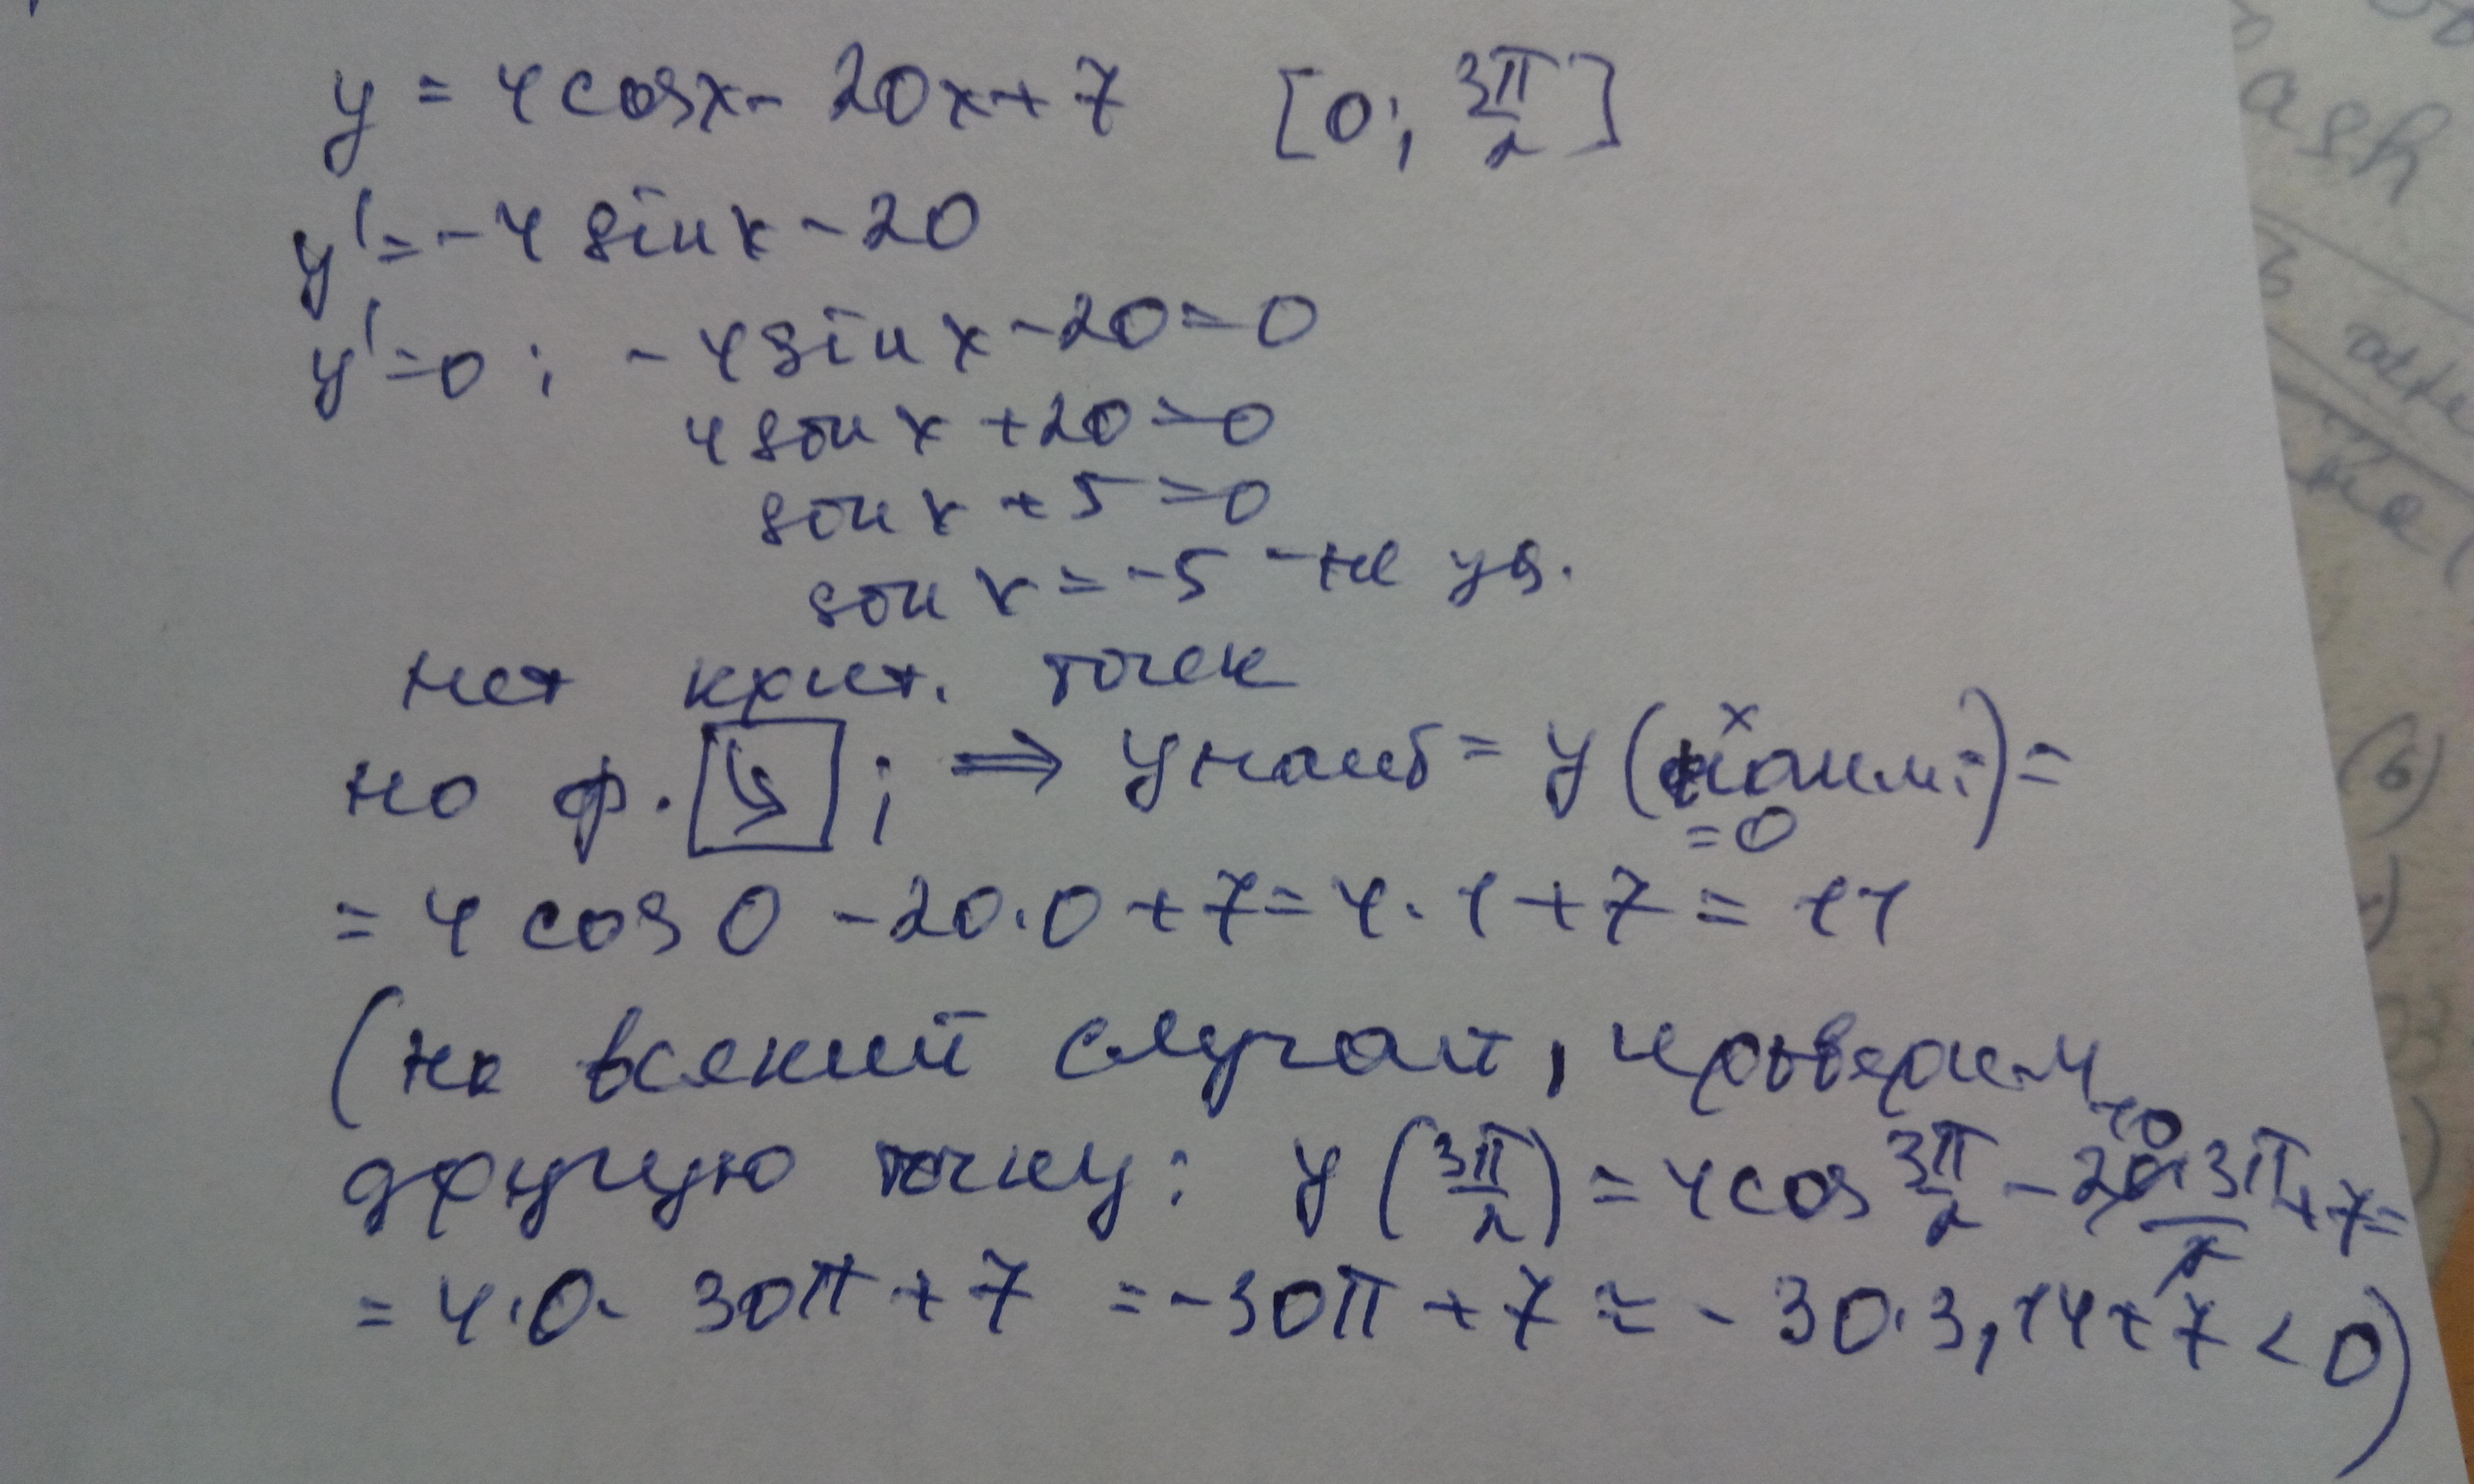 y = 4cosx - 20x + 7 [0; 3π/2]
y' = -4 sin x - 20
y' = 0; -4 sin x - 20 = 0
4 sin x + 20 = 0
sin x + 5 = 0
sin x = -5 - не уд.
нет крит. точек
но ф. ↘ ; ⇒ y наиб = y (x наим. = 0) =
= 4 cos 0 - 20·0 + 7 = 4·1 + 7 = 11
(на всякий случай, проверим
другую точку: y (3π/2) = 4cos 3π/2 - 20·3π/2 + 7 =
= 4·0 - 30π + 7 = -30π + 7 ≈ -30·3,14 + 7 < 0)
ash
(b)